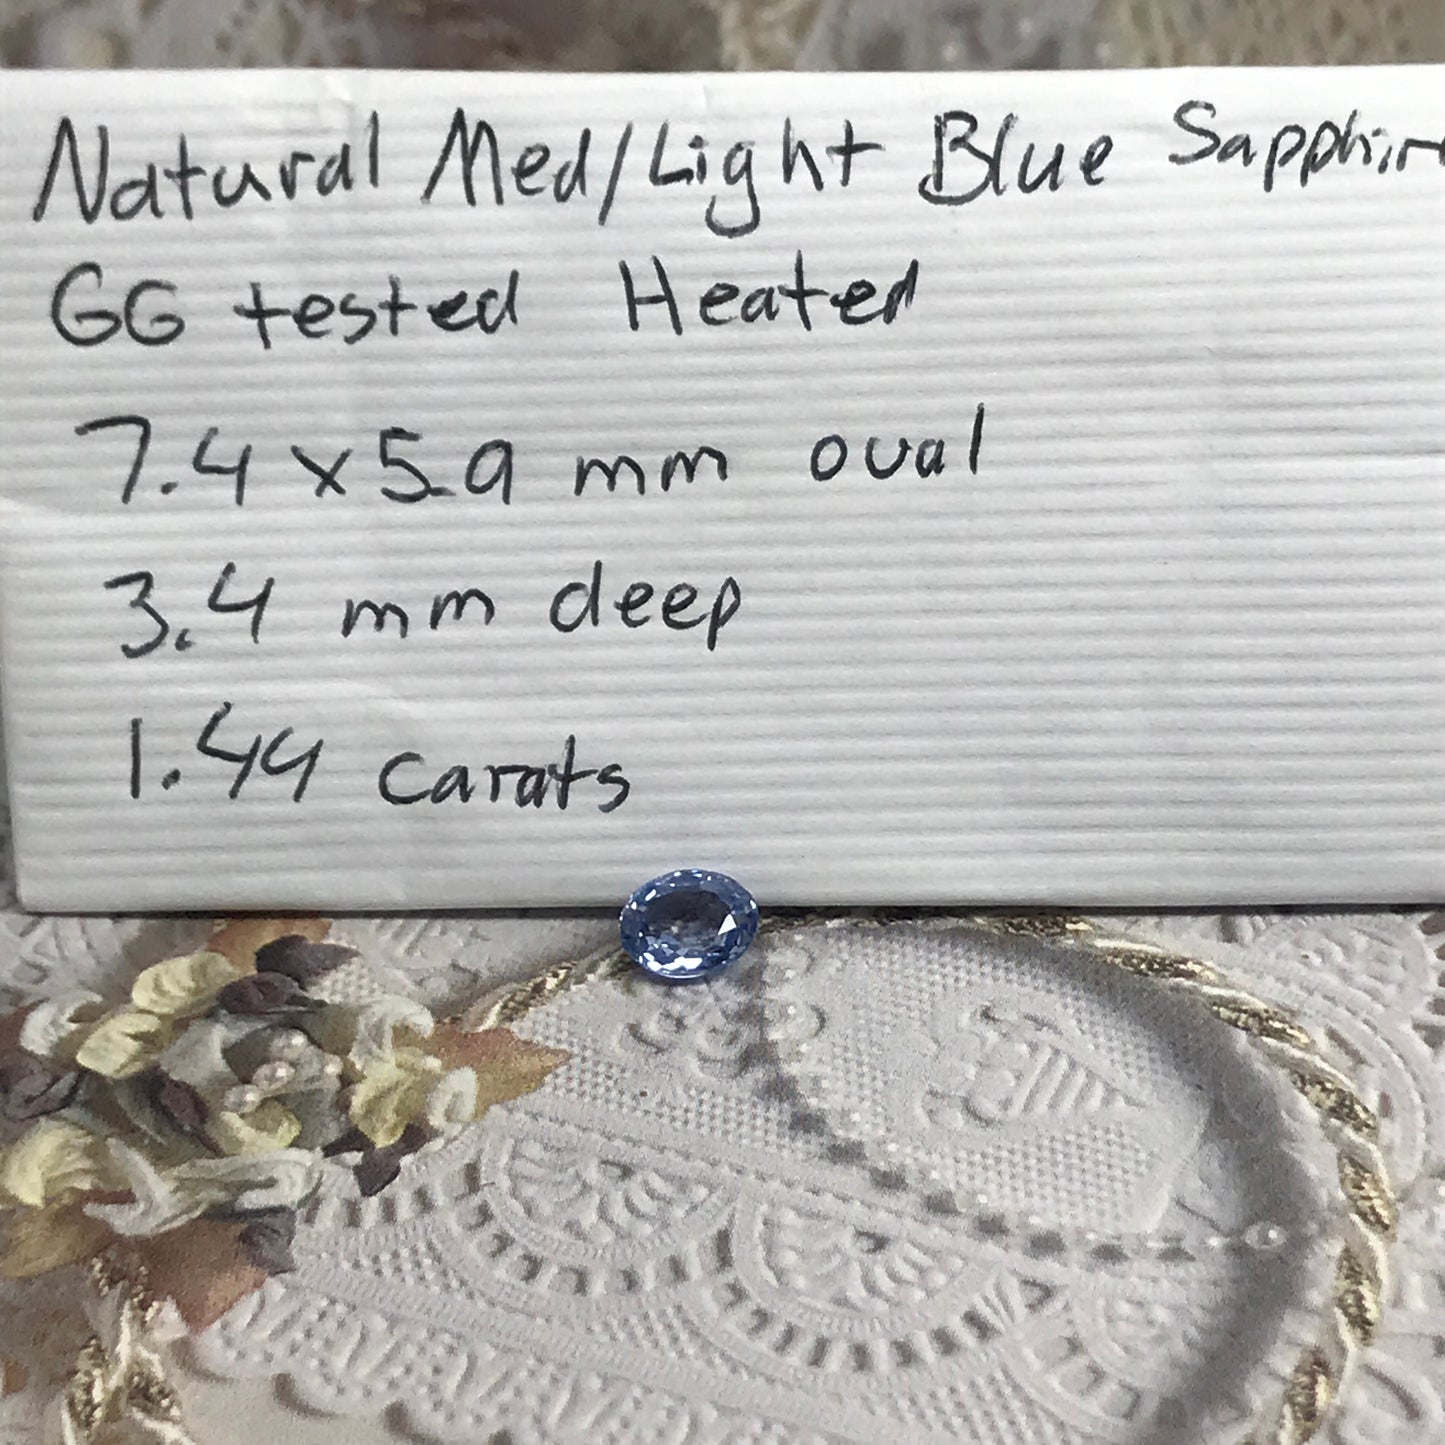 Natural Med/Light Blue Sapphir
GG tested Heated
7.4 x 5.9 mm oval
3.4 mm deep
1.44 carats